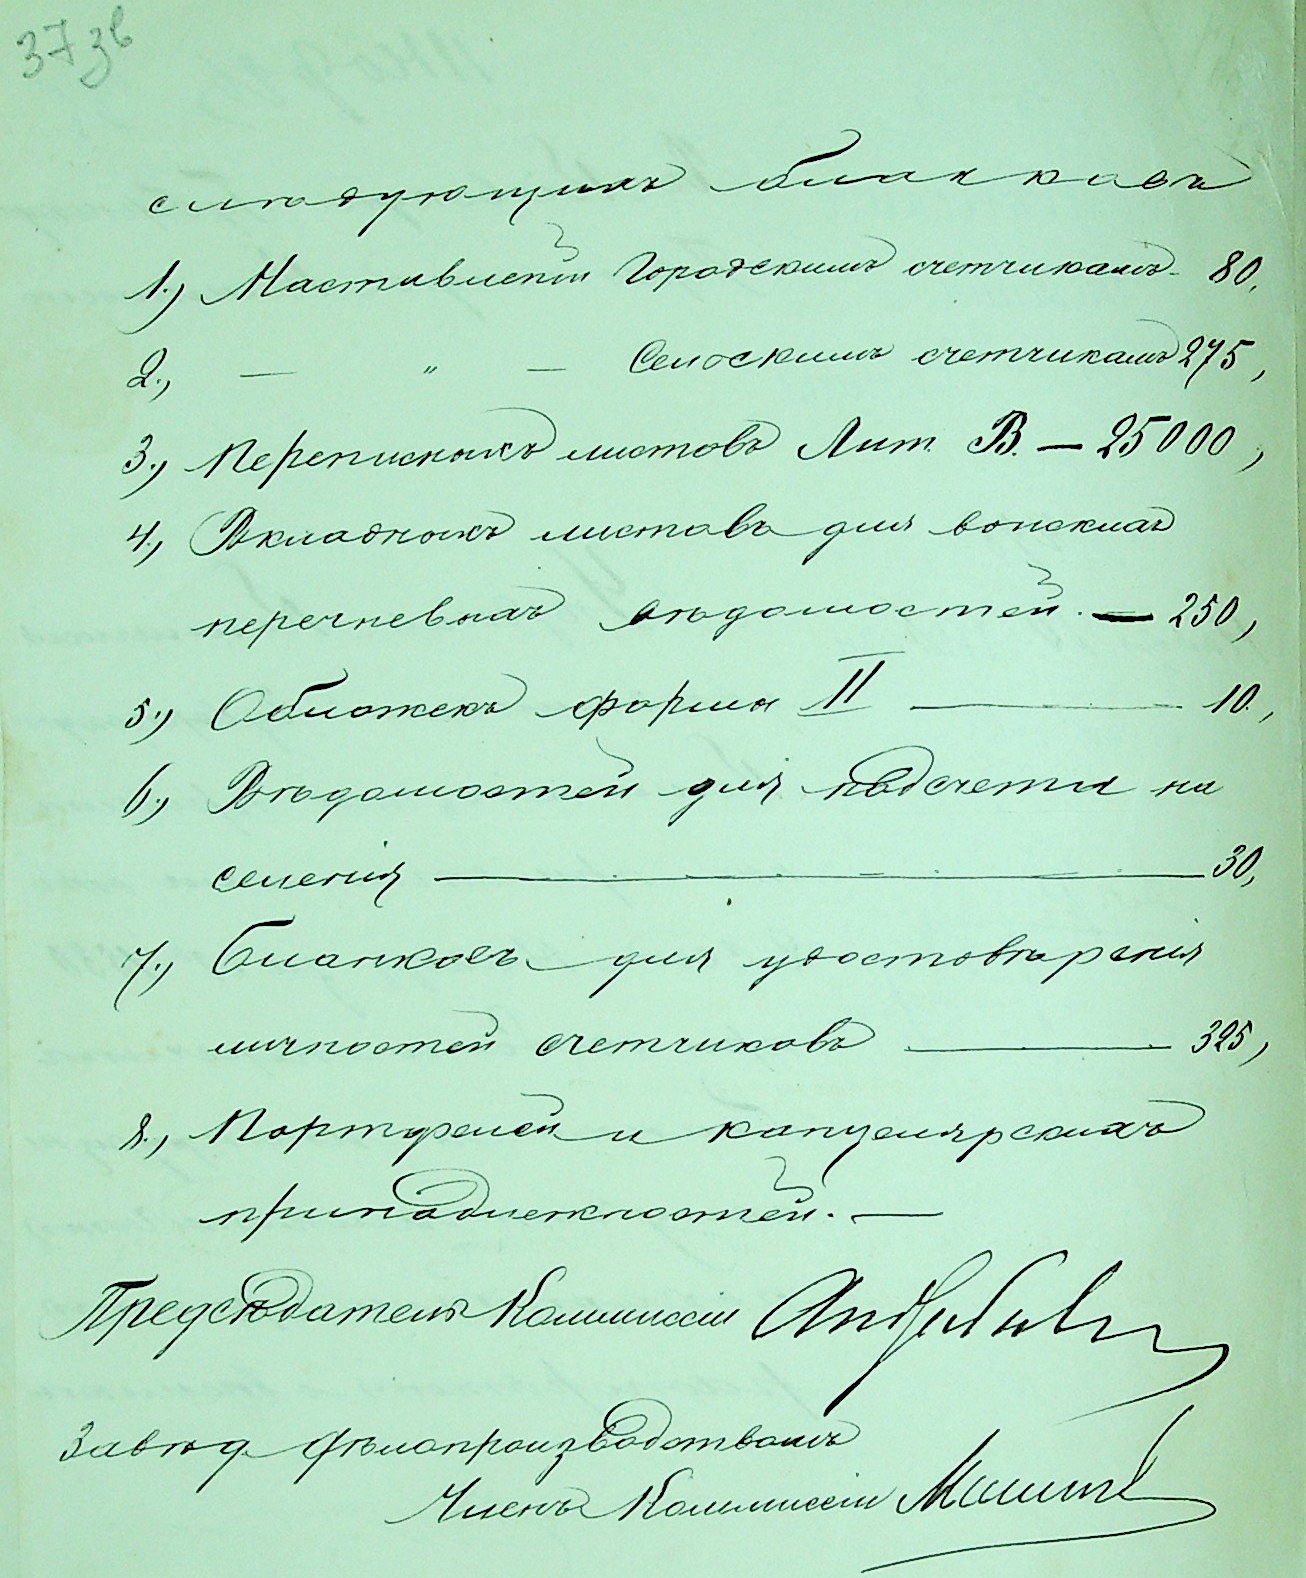 37 зв
слѣдующихъ бланковъ
1., Наставленій Городскимъ счетчикамъ - 80,
2., — " — Сельскимъ счетчикамъ 275,
3., Переписныхъ листовъ Лит. В. — 25000,
4., Вкладныхъ листовъ для воинскихъ
перечневыхъ вѣдомостей. — 250,
5., Обложекъ формы II — 10.,
6., Вѣдомостей для подсчета на
селенія — 30,
7., Бланковъ для удостовѣренія
личностей счетчиковъ — 325,
8., Портфелей и канцелярскихъ
принадлежностей. —
Предсѣдатель Коммиссіи
Завѣд дѣлопроизводствомъ
Членъ Коммиссіи